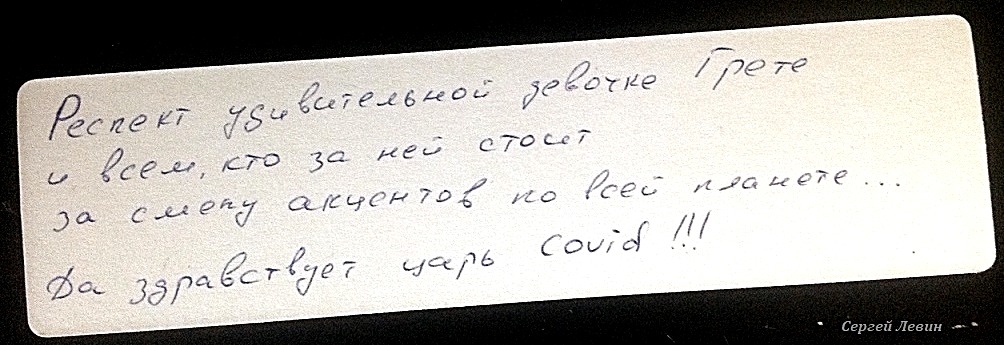 Респект удивительной девочке Грете
и всем, кто за ней стоит
за смену акцентов по всей планете...
Да здравствует царь Covid!!!
Сергей Левин